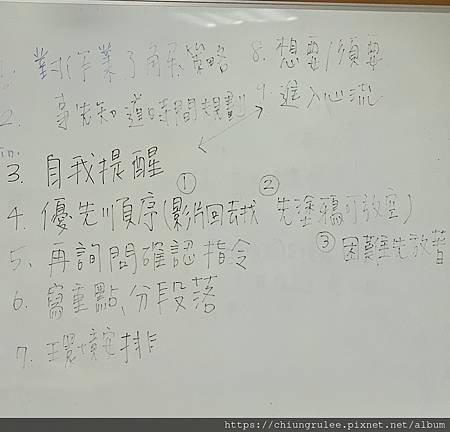 1. 對作業了解策略
2. 事先知道時間規劃
3. 自我提醒
4. 優先順序(①影片回去找 ②先塗鴉可放空)
③困難先放著
5. 再詢問確認指令
6. 寫重點、分段落
7. 環境安排
8. 想要/須要
9. 進入心流
https://chiungrulee.pixnet.net/album